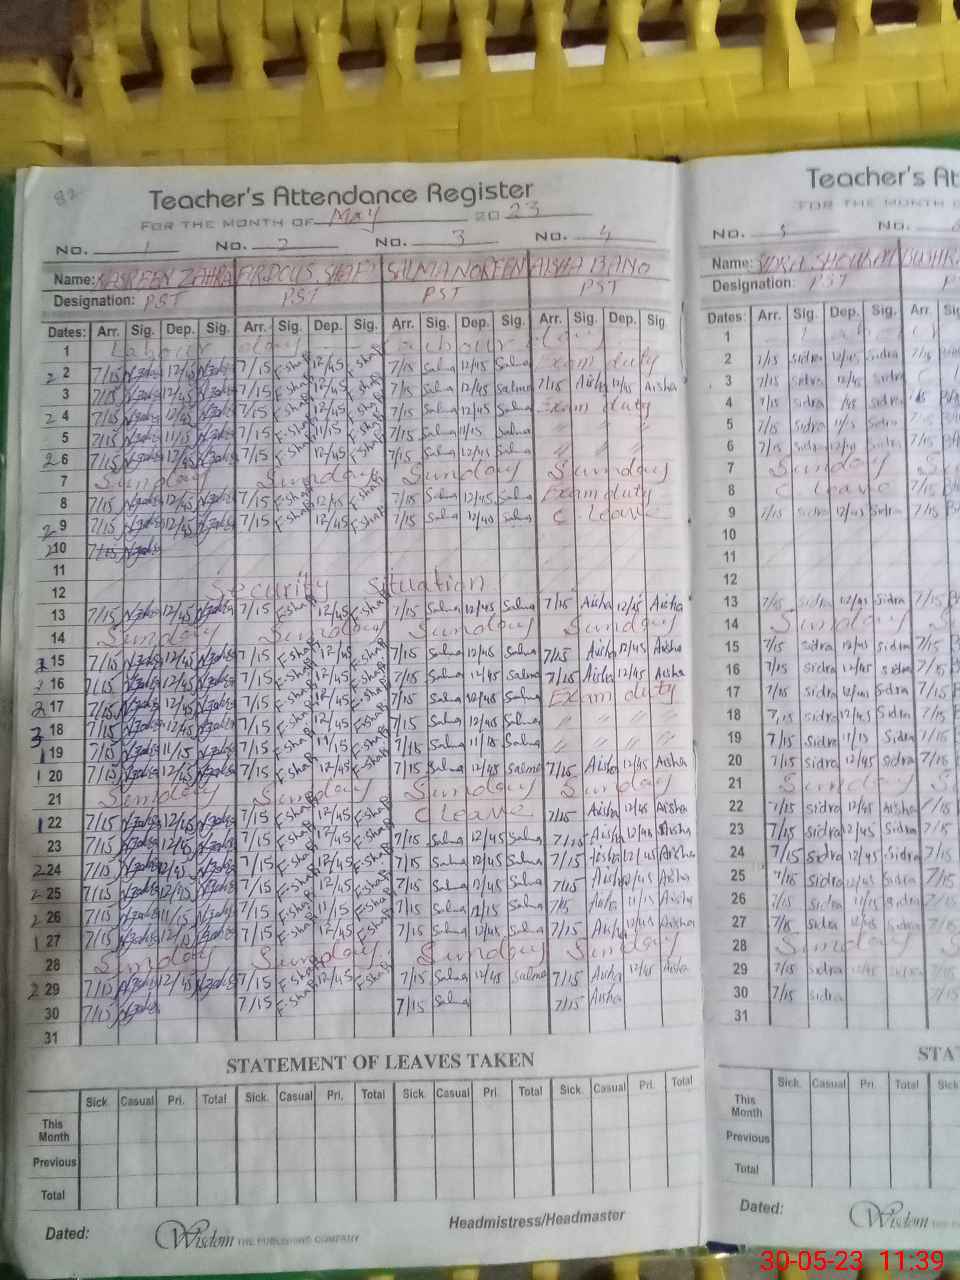 82
Teacher's Attendance Register
FOR THE MONTH OF May 2023
No. 1 No. 2 No. 3 No. 4
Name: NASREEN ZAHRA FIRDOUS SHAFI SALMA NOREEN AISHA BANO
Designation: PST PST PST PST
Dates: Arr. Sig. Dep. Sig. Arr. Sig. Dep. Sig. Arr. Sig. Dep. Sig. Arr. Sig. Dep. Sig.
1 Labour day Labour day
2 2 7/15 12/45 7/15 F-Shafi 12/45 F-Shafi 7/15 Salma 12/45 Salma Exam duty
3 7/15 12/45 7/15 F-Shafi 12/45 F-Shafi 7/15 Salma 12/45 Salma 7/15 Aisha 12/45 Aisha
2 4 7/15 12/45 7/15 F-Shafi 12/45 F-Shafi 7/15 Salma 12/45 Salma Exam duty
5 7/15 11/15 7/15 F-Shafi 11/15 F-Shafi 7/15 Salma 11/15 Salma " " "
2 6 7/15 12/45 7/15 F-Shafi 12/45 F-Shafi 7/15 Salma 12/45 Salma " " "
7 Sunday Sunday Sunday Sunday
8 7/15 12/45 7/15 F-Shafi 12/45 F-Shafi 7/15 Salma 12/45 Salma Exam duty
2 9 7/15 12/45 7/15 F-Shafi 12/45 F-Shafi 7/15 Salma 12/40 Salma C. leave
2 10 7/15
11
12 Security Situation
13 7/15 12/45 7/15 F-Shafi 12/45 F-Shafi 7/15 Salma 12/45 Salma 7/15 Aisha 12/45 Aisha
14 Sunday Sunday Sunday Sunday
15 7/15 12/45 7/15 F-Shafi 12/45 F-Shafi 7/15 Salma 12/45 Salma 7/15 Aisha 12/45 Aisha
16 7/15 12/45 7/15 F-Shafi 12/45 F-Shafi 7/15 Salma 12/45 Salma 7/15 Aisha 12/45 Aisha
2 17 7/15 12/45 7/15 F-Shafi 12/45 F-Shafi 7/15 Salma 12/45 Salma Exam duty
3 18 7/15 12/45 7/15 F-Shafi 12/45 F-Shafi 7/15 Salma 12/45 Salma " " " "
1 19 7/15 11/15 7/15 F-Shafi 11/15 F-Shafi 7/15 Salma 11/15 Salma " " " "
1 20 7/15 12/45 7/15 F-Shafi 12/45 F-Shafi 7/15 Salma 12/45 Salma 7/15 Aisha 12/45 Aisha
21 Sunday Sunday Sunday Sunday
1 22 7/15 12/45 7/15 F-Shafi 12/45 F-Shafi C leave 7/15 Aisha 12/45 Aisha
23 7/15 12/45 7/15 F-Shafi 12/45 F-Shafi 7/15 Salma 12/45 Salma 7/15 Aisha 12/45 Aisha
2 24 7/15 12/45 7/15 F-Shafi 12/45 F-Shafi 7/15 Salma 12/45 Salma 7/15 Aisha 12/45 Aisha
2 25 7/15 12/45 7/15 F-Shafi 12/45 F-Shafi 7/15 Salma 12/45 Salma 7/15 Aisha 12/45 Aisha
2 26 7/15 11/15 7/15 F-Shafi 11/15 F-Shafi 7/15 Salma 11/15 Salma 7/15 Aisha 11/15 Aisha
1 27 7/15 12/45 7/15 F-Shafi 12/45 F-Shafi 7/15 Salma 12/45 Salma 7/15 Aisha 12/45 Aisha
28 Sunday Sunday Sunday Sunday
2 29 7/15 12/45 7/15 F-Shafi 12/45 F-Shafi 7/15 Salma 12/45 Salma 7/15 Aisha 12/45 Aisha
30 7/15 7/15 F-Shafi 7/15 Salma 7/15 Aisha
31
STATEMENT OF LEAVES TAKEN
Sick. Casual Pri. Total Sick. Casual Pri. Total Sick. Casual Pri. Total Sick. Casual Pri. Total
This Month
Previous
Total
Dated: Headmistress/Headmaster
Wisdom THE PUBLISHING COMPANY
Teacher's At
FOR THE MONTH
No. 5 No.
Name: SIDRA SHOUKAT BUSHR
Designation: PST
Dates: Arr. Sig. Dep. Sig. Arr.
1
2 7/15 Sidra 12/45 Sidra 7/15
3 7/15 Sidra 12/45 Sidra
4 7/15 Sidra /45 Sidra
5 7/15 Sidra 11/15 Sidra 7/15
6 7/15 Sidra 12/45 Sidra 7/15
7 Sunday
8 C. leave 7/15
9 7/15 Sidra 12/45 Sidra 7/15
10
11
12
13 7/15 Sidra 12/45 Sidra 7/15
14 Sunday
15 7/15 Sidra 12/45 Sidra 7/15
16 7/15 Sidra 12/45 Sidra 7/15
17 7/15 Sidra 12/45 Sidra 7/15
18 7/15 Sidra 12/45 Sidra 7/15
19 7/15 Sidra 11/15 Sidra 7/15
20 7/15 Sidra 12/45 Sidra 7/15
21 Sunday
22 7/15 Sidra 12/45 Aisha 7/15
23 7/15 Sidra 12/45 Sidra 7/15
24 7/15 Sidra 12/45 Sidra 7/15
25 7/15 Sidra 12/45 Sidra 7/15
26 7/15 Sidra 11/15 Sidra 7/15
27 7/15 Sidra 12/45 Sidra 7/15
28 Sunday
29 7/15 Sidra 12/45 Sidra 7/15
30 7/15 Sidra 7/15
31
STA
Sick. Casual Pri. Total Sick
This Month
Previous
Total
Dated:
Wisdom
30-05-23 11:39